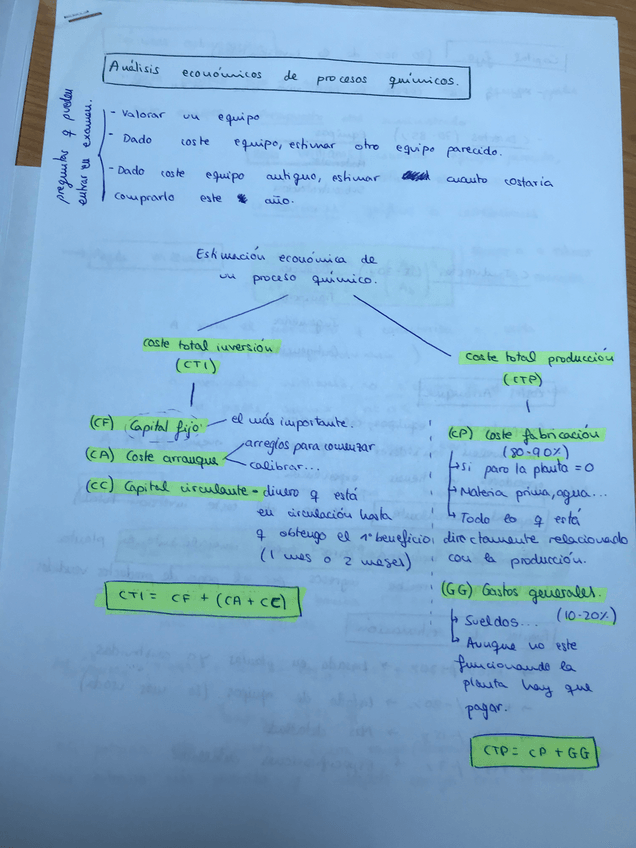 Análisis económicos de procesos químicos.
preguntas q pueden
entrar en examen.
- Valorar un equipo
- Dado coste equipo, estimar otro equipo parecido.
- Dado coste equipo antiguo, estimar cuanto costaria
comprarlo este año.
Estimación económica de
un proceso químico.
coste total inversión
(CTI)
(CF) Capital fijo
el más importante.
(CA) Coste arranque
arreglos para comenzar
calibrar...
(CC) Capital circulante = dinero q está
en circulación hasta
q obtengo el 1º beneficio
(1 mes o 2 meses)
CTI = CF + (CA + CC)
Coste total producción
(CTP)
(CP) Coste fabricación
(80-90%)
Si paro la planta = 0
Materia prima, agua...
Todo lo q está
directamente relacionado
con la producción.
(GG) Gastos generales.
(10-20%)
Sueldos...
Aunque no este
funcionando la
planta hay que
pagar.
CTP = CP + GG